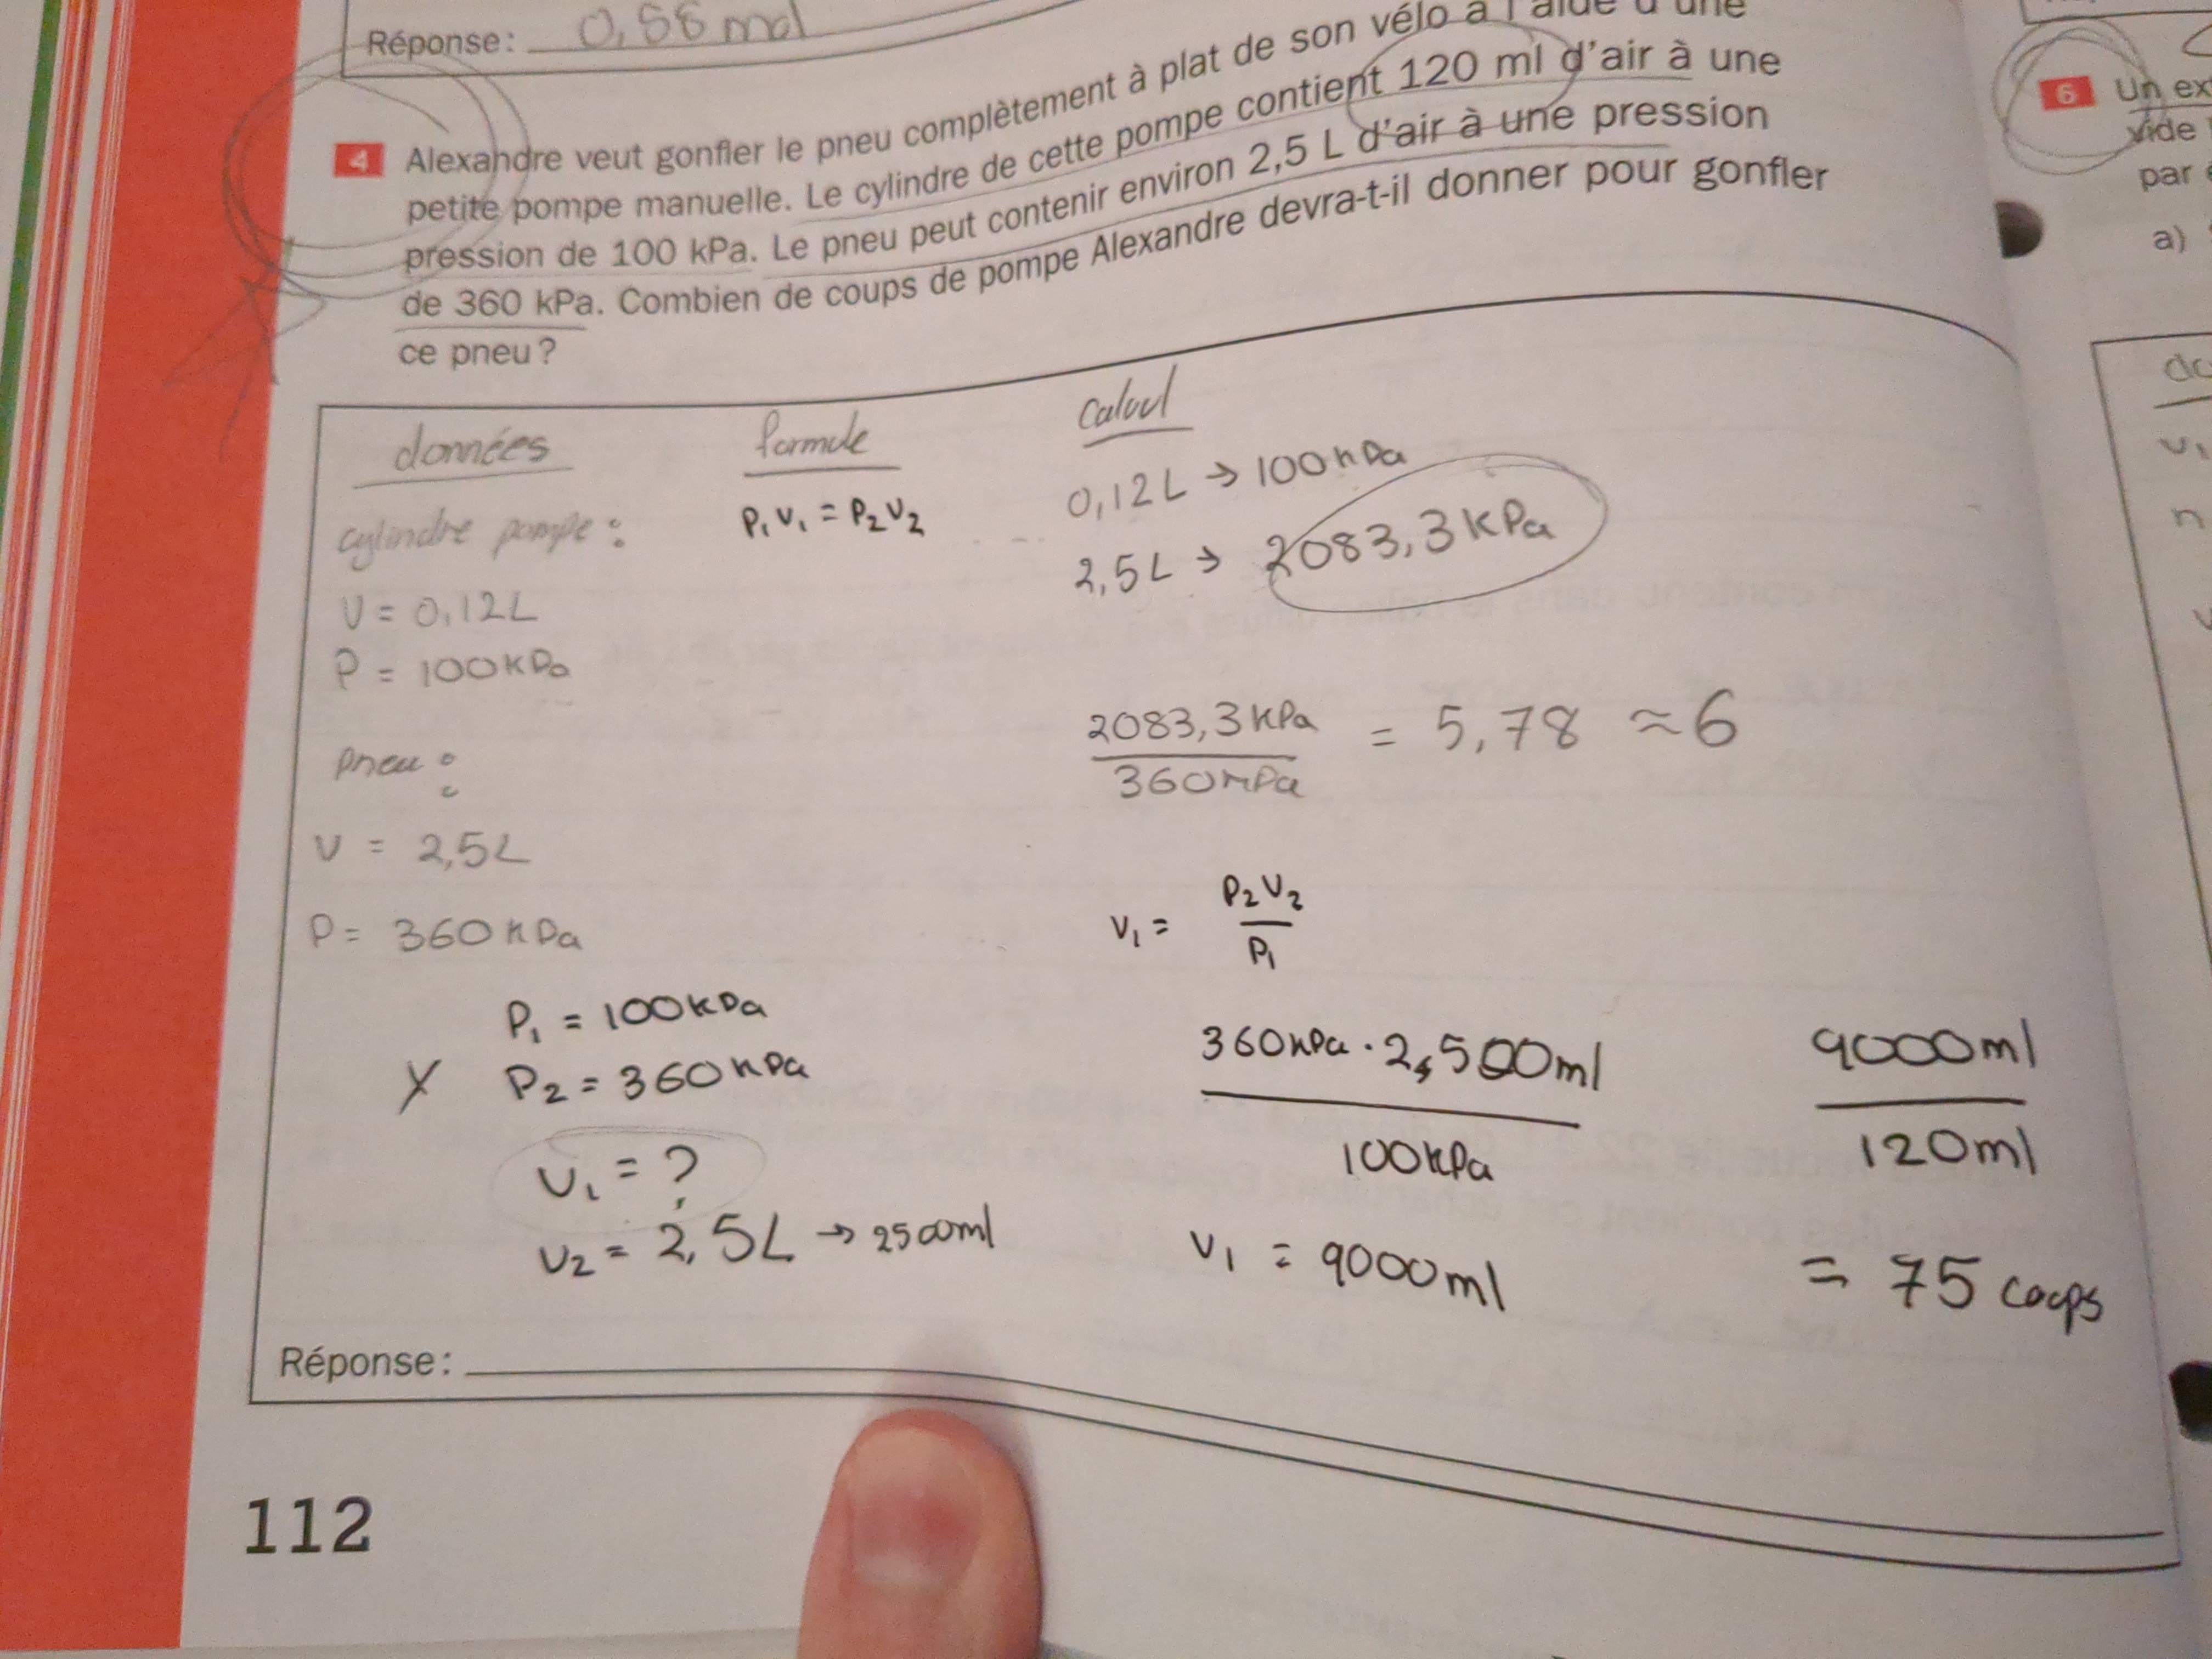 Réponse: 0,58 mol
4 Alexandre veut gonfler le pneu complètement à plat de son vélo à l'aide d'une
petite pompe manuelle. Le cylindre de cette pompe contient 120 ml d'air à une
pression de 100 kPa. Le pneu peut contenir environ 2,5 L d'air à une pression
de 360 kPa. Combien de coups de pompe Alexandre devra-t-il donner pour gonfler
ce pneu?
données
cylindre pompe:
V = 0,12L
P = 100kPa
pneu:
V = 2,5L
P = 360kPa
P₁ = 100kPa
X P₂ = 360kPa
V₁ = ?
V₂ = 2,5L → 2500ml
formule
P₁V₁ = P₂V₂
Calcul
0,12L → 100kPa
2,5L → 2083,3kPa
2083,3kPa
360kPa
= 5,78 ≈ 6
V₁ = P₂V₂
P₁
360kPa · 2,500ml
100kPa
V₁ = 9000ml
9000ml
120ml
= 75 coups
Réponse:
112
6 Un ex
vide
par
a)
V₁
n